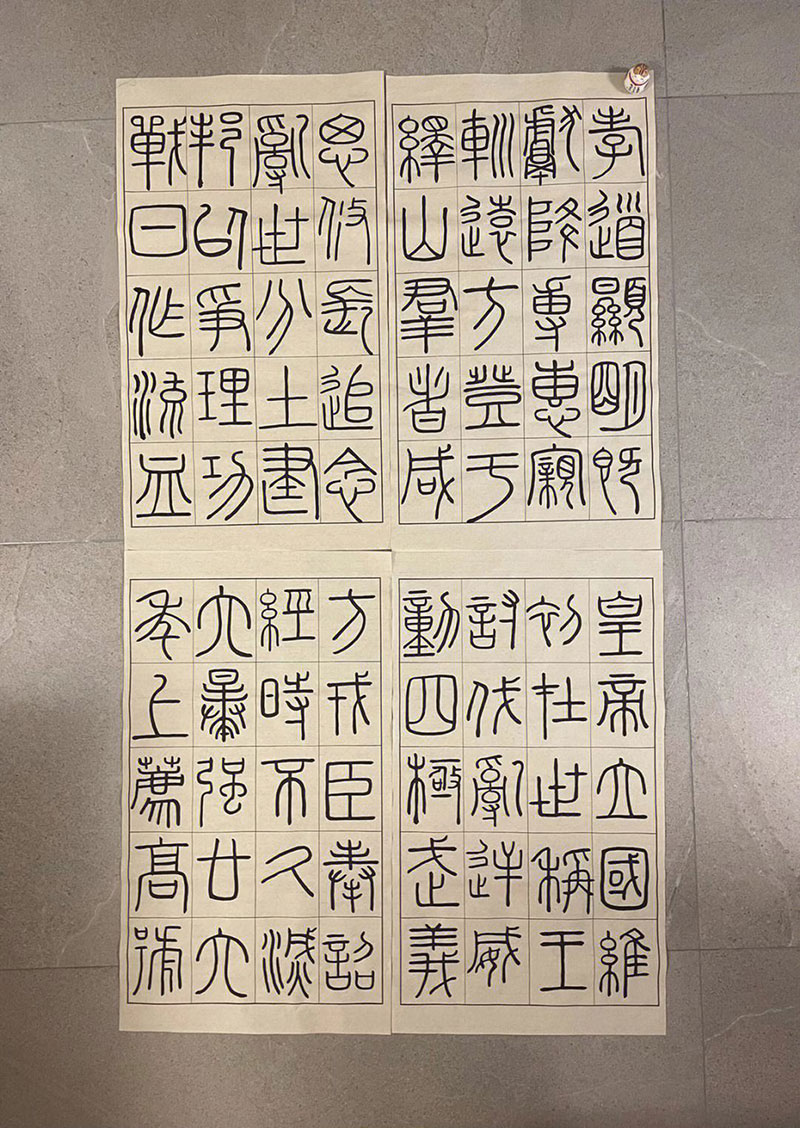 皇帝立國維
初在世稱王
討伐亂逆威
動四極武義
方戎臣奉詔
經時不久滅
六暴强廿六
年上薦高號
孝道顯明既
獻降專惠親
巡遠方登于
繹山羣者咸
思攸長追念
亂世分土建
邦以爭理功
戰日作流血